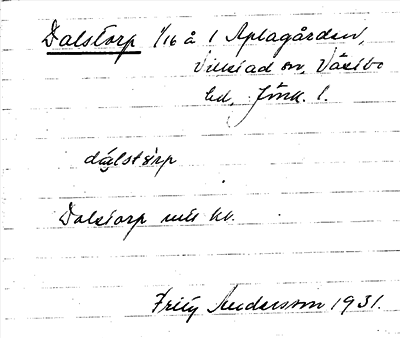 Dalstorp 1/16 å 1 Aplagården,
Villstad sn, Västbo
hd, Jönk. l.
dálstòrp
Dalstorp mtl kv.
Fritz Andersson 1931.